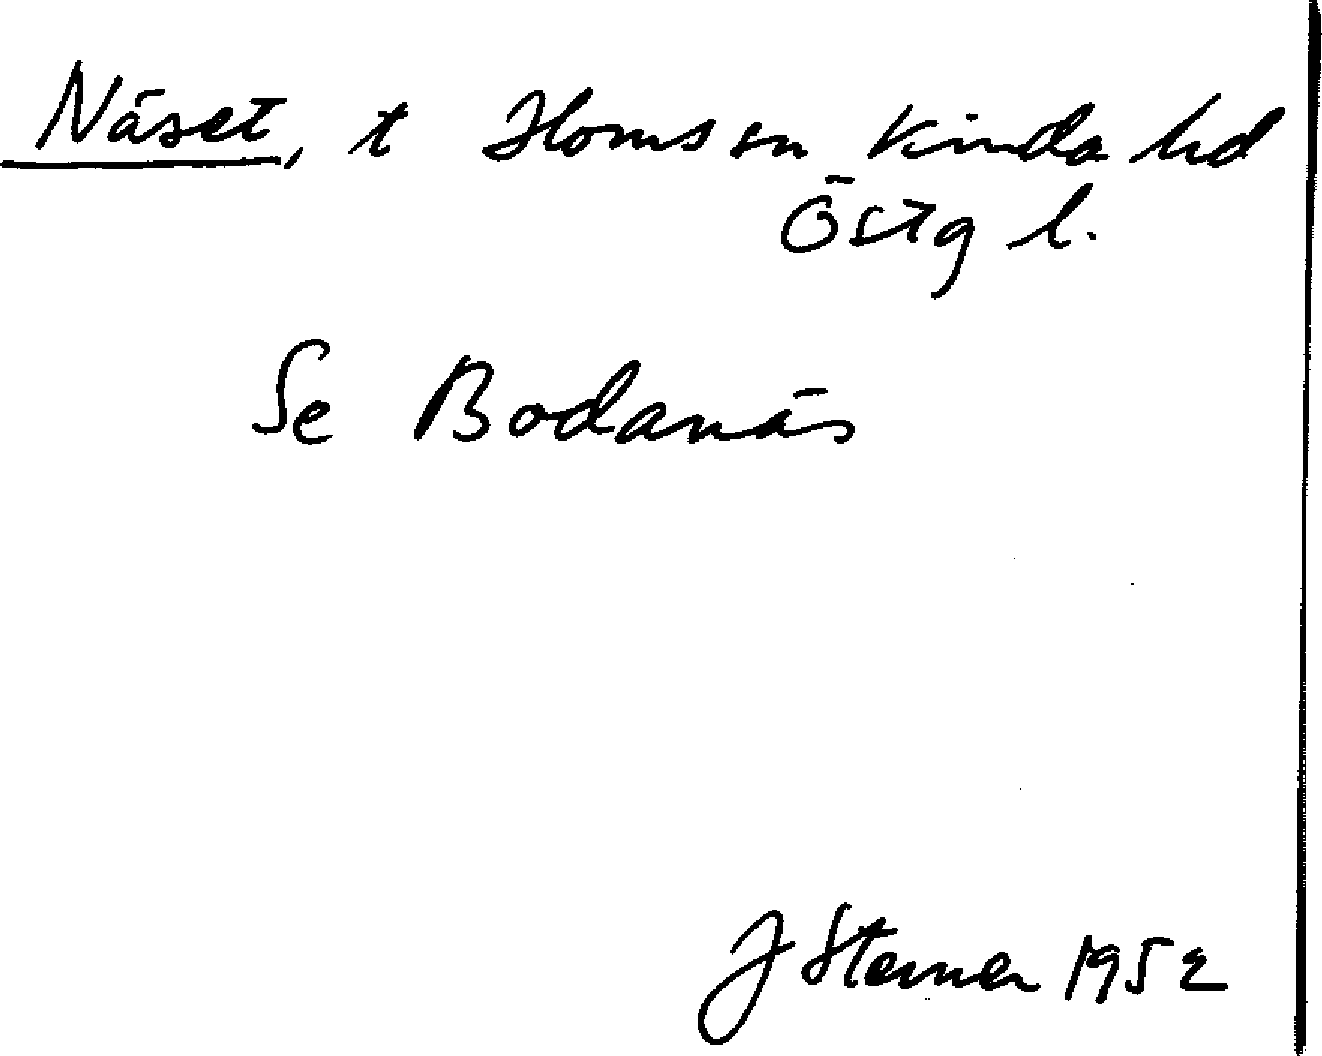 Näset, t Horns sn Kinda hd
Östg l.
Se Bodanäs
J Sterner 1952